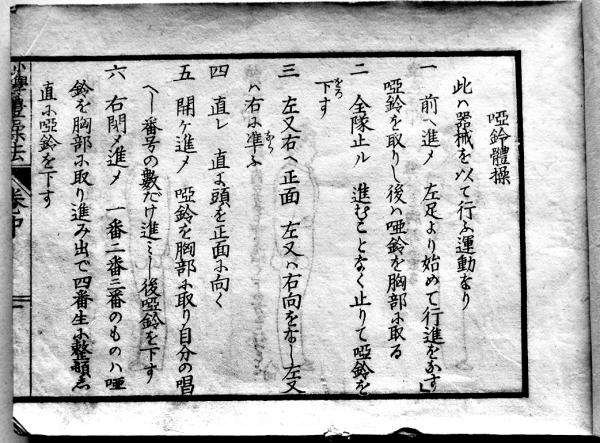 啞鈴體操
此ハ器械を以て行ふ運動なり
一 前ヘ進メ 左足より始めて行進をなす」
啞鈴を取りし後ハ啞鈴を胸部に取る
二 全隊止ル 進むことなく止りて啞鈴を
下す
三 左又右ヘ正面 左又ハ右向をなし左又
ハ右に準ふ
四 直レ 直に頭を正面に向く
五 開ケ進メ 啞鈴を胸部に取り自分の唱
へし番号の數だけ進ミし後啞鈴を下す
六 右閉メ進メ 一番二番三番のものハ啞
鈴を胸部に取り進み出で四番生に整頓し
直に啞鈴を下す
小學體操法 卷中